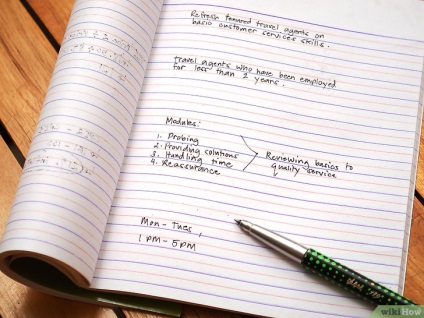 Refresh tenured travel agents on
basic customer services skills.
travel agents who have been employed
for less than 2 years.
Modules:
1. Probing
2. Providing solutions
3. Handling time
4. Reassurance
Reviewing basics to
quality service
Mon - Tues,
1 PM - 5 PM
wikiHow